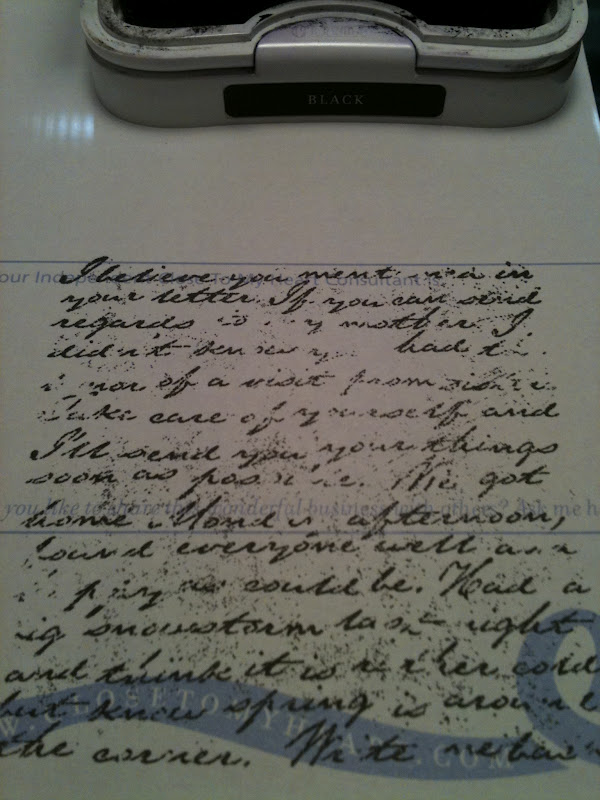 BLACK
our Independent Close To My Heart Consultant is:
I believe you ment in
your letter. If you can send
regards mother. I
didn't know had
of a visit from
Take care of yourself and
I'll send you your things
soon as possible. We got
you like to share this wonderful business with others? Ask me h
home Monday afternoon,
found everyone well
could be. Had a
snowstorm last night
and think it is rather cold
W.CLOSETOMYHEART.COM
but know spring is around
the corner. Write me back